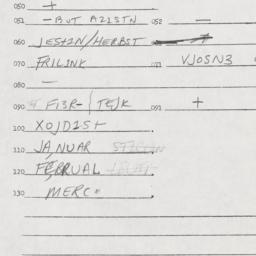 050 +
051 - BUT AZISTN 052 —
060 JESIZN/HERBST
070 FRILINK 071 VJOSN3
080 —
090 FI3R-/TEJK 091 +
100 XOJDIS+
110 JANUAR
120 FEBRUAL
130 MERC